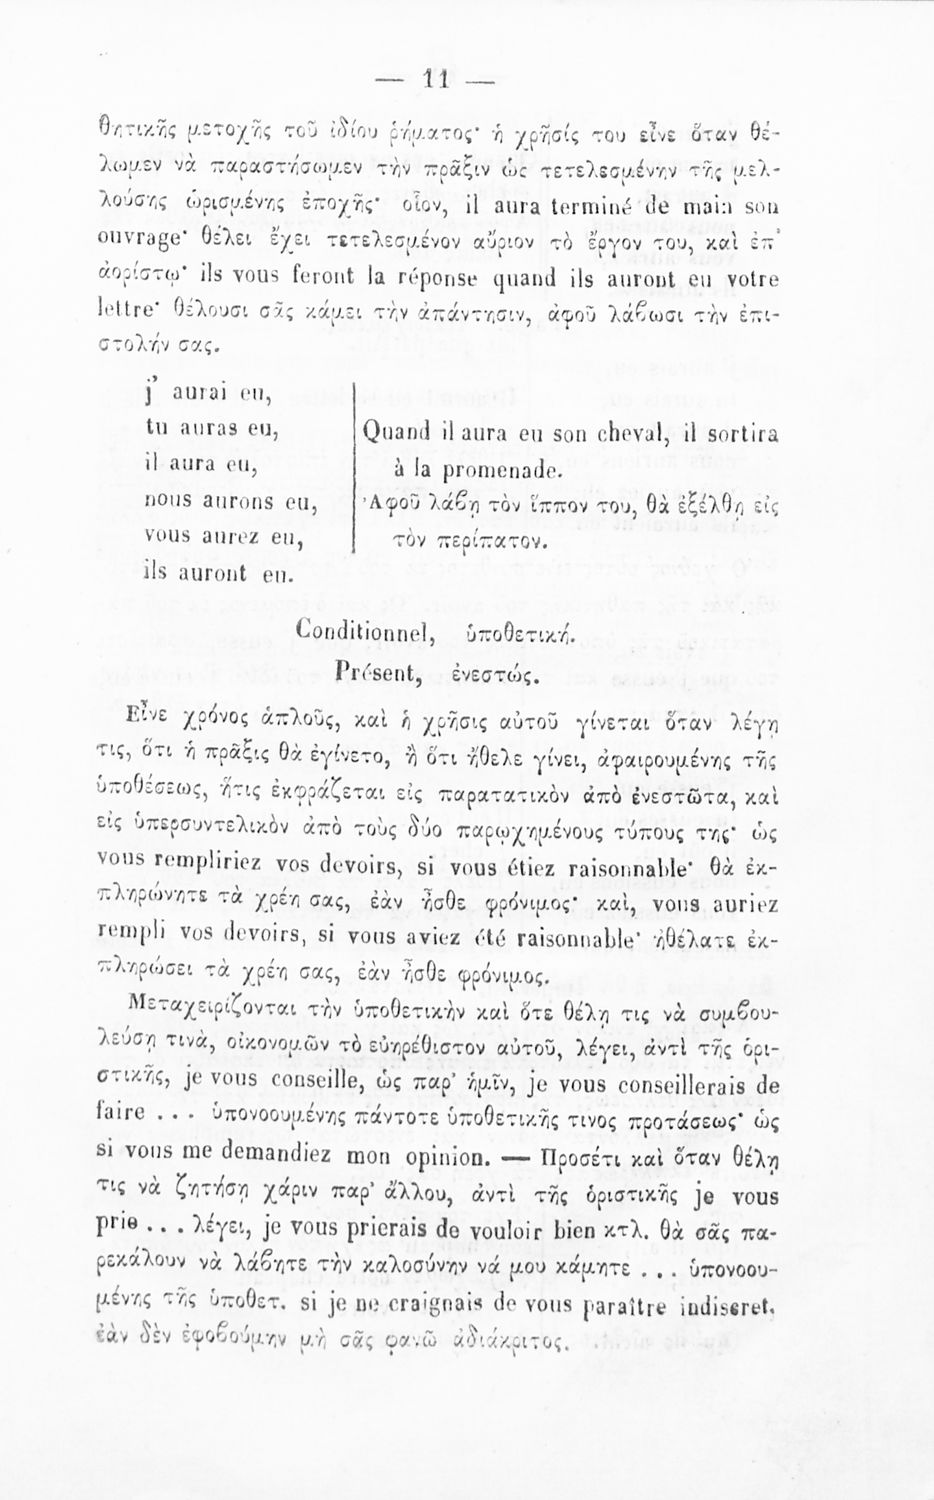 — 11 —
θητικῆς μετοχῆς τοῦ ἰδίου ῥήματος· ἡ χρῆσίς του εἶνε ὅταν θέ-
λωμεν νὰ παραστήσωμεν τὴν πρᾶξιν ὡς τετελεσμένην τῆς μελ-
λούσης ὡρισμένης ἐποχῆς· οἷον, il aura terminé de main son
ouvrage· θέλει ἔχει τετελεσμένον αὔριον τὸ ἔργον του, καὶ ἐπ'
ἀορίστῳ· ils vous feront la réponse quand ils auront eu votre
lettre· θέλουσι σᾶς κάμει τὴν ἀπάντησιν, ἀφοῦ λάβωσι τὴν ἐπι-
στολήν σας.
j' aurai eu,
tu auras eu,
il aura eu,
nous aurons eu,
vous aurez eu,
ils auront eu.
Quand il aura eu son cheval, il sortira
à la promenade.
Ἀφοῦ λάβῃ τὸν ἵππον του, θὰ ἐξέλθῃ εἰς
τὸν περίπατον.
Conditionnel, ὑποθετική.
Présent, ἐνεστώς.
Εἶνε χρόνος ἁπλοῦς, καὶ ἡ χρῆσις αὐτοῦ γίνεται ὅταν λέγῃ
τις, ὅτι ἡ πρᾶξις θὰ ἐγίνετο, ἢ ὅτι ἤθελε γίνει, ἀφαιρουμένης τῆς
ὑποθέσεως, ἥτις ἐκφράζεται εἰς παρατατικὸν ἀπὸ ἐνεστῶτα, καὶ
εἰς ὑπερσυντελικὸν ἀπὸ τοὺς δύο παρῳχημένους τύπους της· ὡς
vous rempliriez vos devoirs, si vous étiez raisonnable· θὰ ἐκ-
πληρώνητε τὰ χρέη σας, ἐὰν ἦσθε φρόνιμος· καὶ, vous auriez
rempli vos devoirs, si vous aviez été raisonnable· ἠθέλατε ἐκ-
πληρώσει τὰ χρέη σας, ἐὰν ἦσθε φρόνιμος.
Μεταχειρίζονται τὴν ὑποθετικὴν καὶ ὅτε θέλῃ τις νὰ συμβου-
λεύσῃ τινὰ, οἰκονομῶν τὸ εὐηρέθιστον αὐτοῦ, λέγει, ἀντὶ τῆς ὁρι-
στικῆς, je vous conseille, ὡς παρ' ἡμῖν, je vous conseillerais de
faire ... ὑπονοουμένης πάντοτε ὑποθετικῆς τινος προτάσεως· ὡς
si vous me demandiez mon opinion. — Προσέτι καὶ ὅταν θέλῃ
τις νὰ ζητήσῃ χάριν παρ' ἄλλου, ἀντὶ τῆς ὁριστικῆς je vous
prie ... λέγει, je vous prierais de vouloir bien κτλ. θὰ σᾶς πα-
ρεκάλουν νὰ λάβητε τὴν καλοσύνην νά μου κάμητε ... ὑπονοου-
μένης τῆς ὑποθετ. si je ne craignais de vous paraître indiscret,
ἐὰν δὲν ἐφοβούμην μὴ σᾶς φανῶ ἀδιάκριτος.